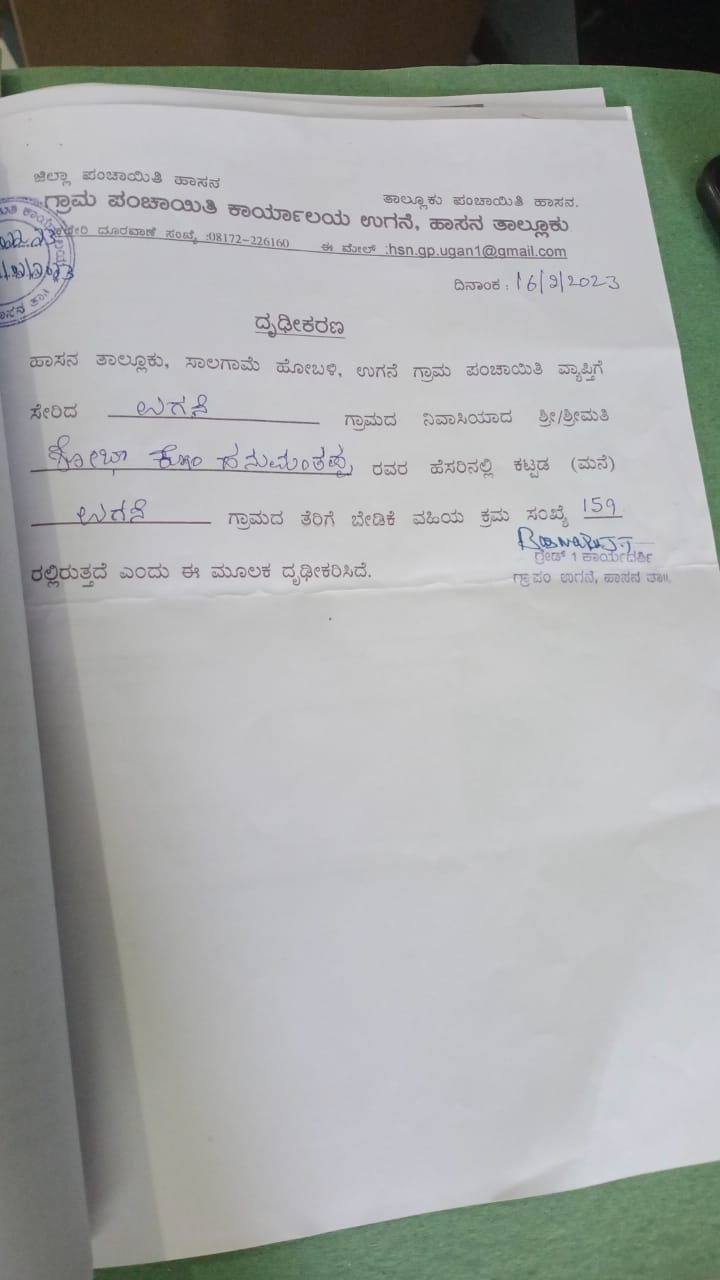 ಜಿಲ್ಲಾ ಪಂಚಾಯಿತಿ ಹಾಸನ
ತಾಲ್ಲೂಕು ಪಂಚಾಯಿತಿ ಹಾಸನ.
ಗ್ರಾಮ ಪಂಚಾಯಿತಿ ಕಾರ್ಯಾಲಯ ಉಗನೆ, ಹಾಸನ ತಾಲ್ಲೂಕು
ದೂರವಾಣಿ ಸಂಖ್ಯೆ :08172-226160 ಈ ಮೇಲ್ :hsn.gp.ugan1@gmail.com
ದಿನಾಂಕ : 16/9/2023
ದೃಢೀಕರಣ
ಹಾಸನ ತಾಲ್ಲೂಕು, ಸಾಲಗಾಮೆ ಹೋಬಳಿ, ಉಗನೆ ಗ್ರಾಮ ಪಂಚಾಯಿತಿ ವ್ಯಾಪ್ತಿಗೆ
ಸೇರಿದ ಉಗನೆ ಗ್ರಾಮದ ನಿವಾಸಿಯಾದ ಶ್ರೀ/ಶ್ರೀಮತಿ
ಶೋಭಾ ಕೋಂ ಹನುಮಂತಪ್ಪ ರವರ ಹೆಸರಿನಲ್ಲಿ ಕಟ್ಟಡ (ಮನೆ)
ಉಗನೆ ಗ್ರಾಮದ ತೆರಿಗೆ ಬೇಡಿಕೆ ವಹಿಯ ಕ್ರಮ ಸಂಖ್ಯೆ 159
ರಲ್ಲಿರುತ್ತದೆ ಎಂದು ಈ ಮೂಲಕ ದೃಢೀಕರಿಸಿದೆ.
ಗ್ರೇಡ್ 1 ಕಾರ್ಯದರ್ಶಿ
ಗ್ರಾಪಂ ಉಗನೆ, ಹಾಸನ ತಾ||